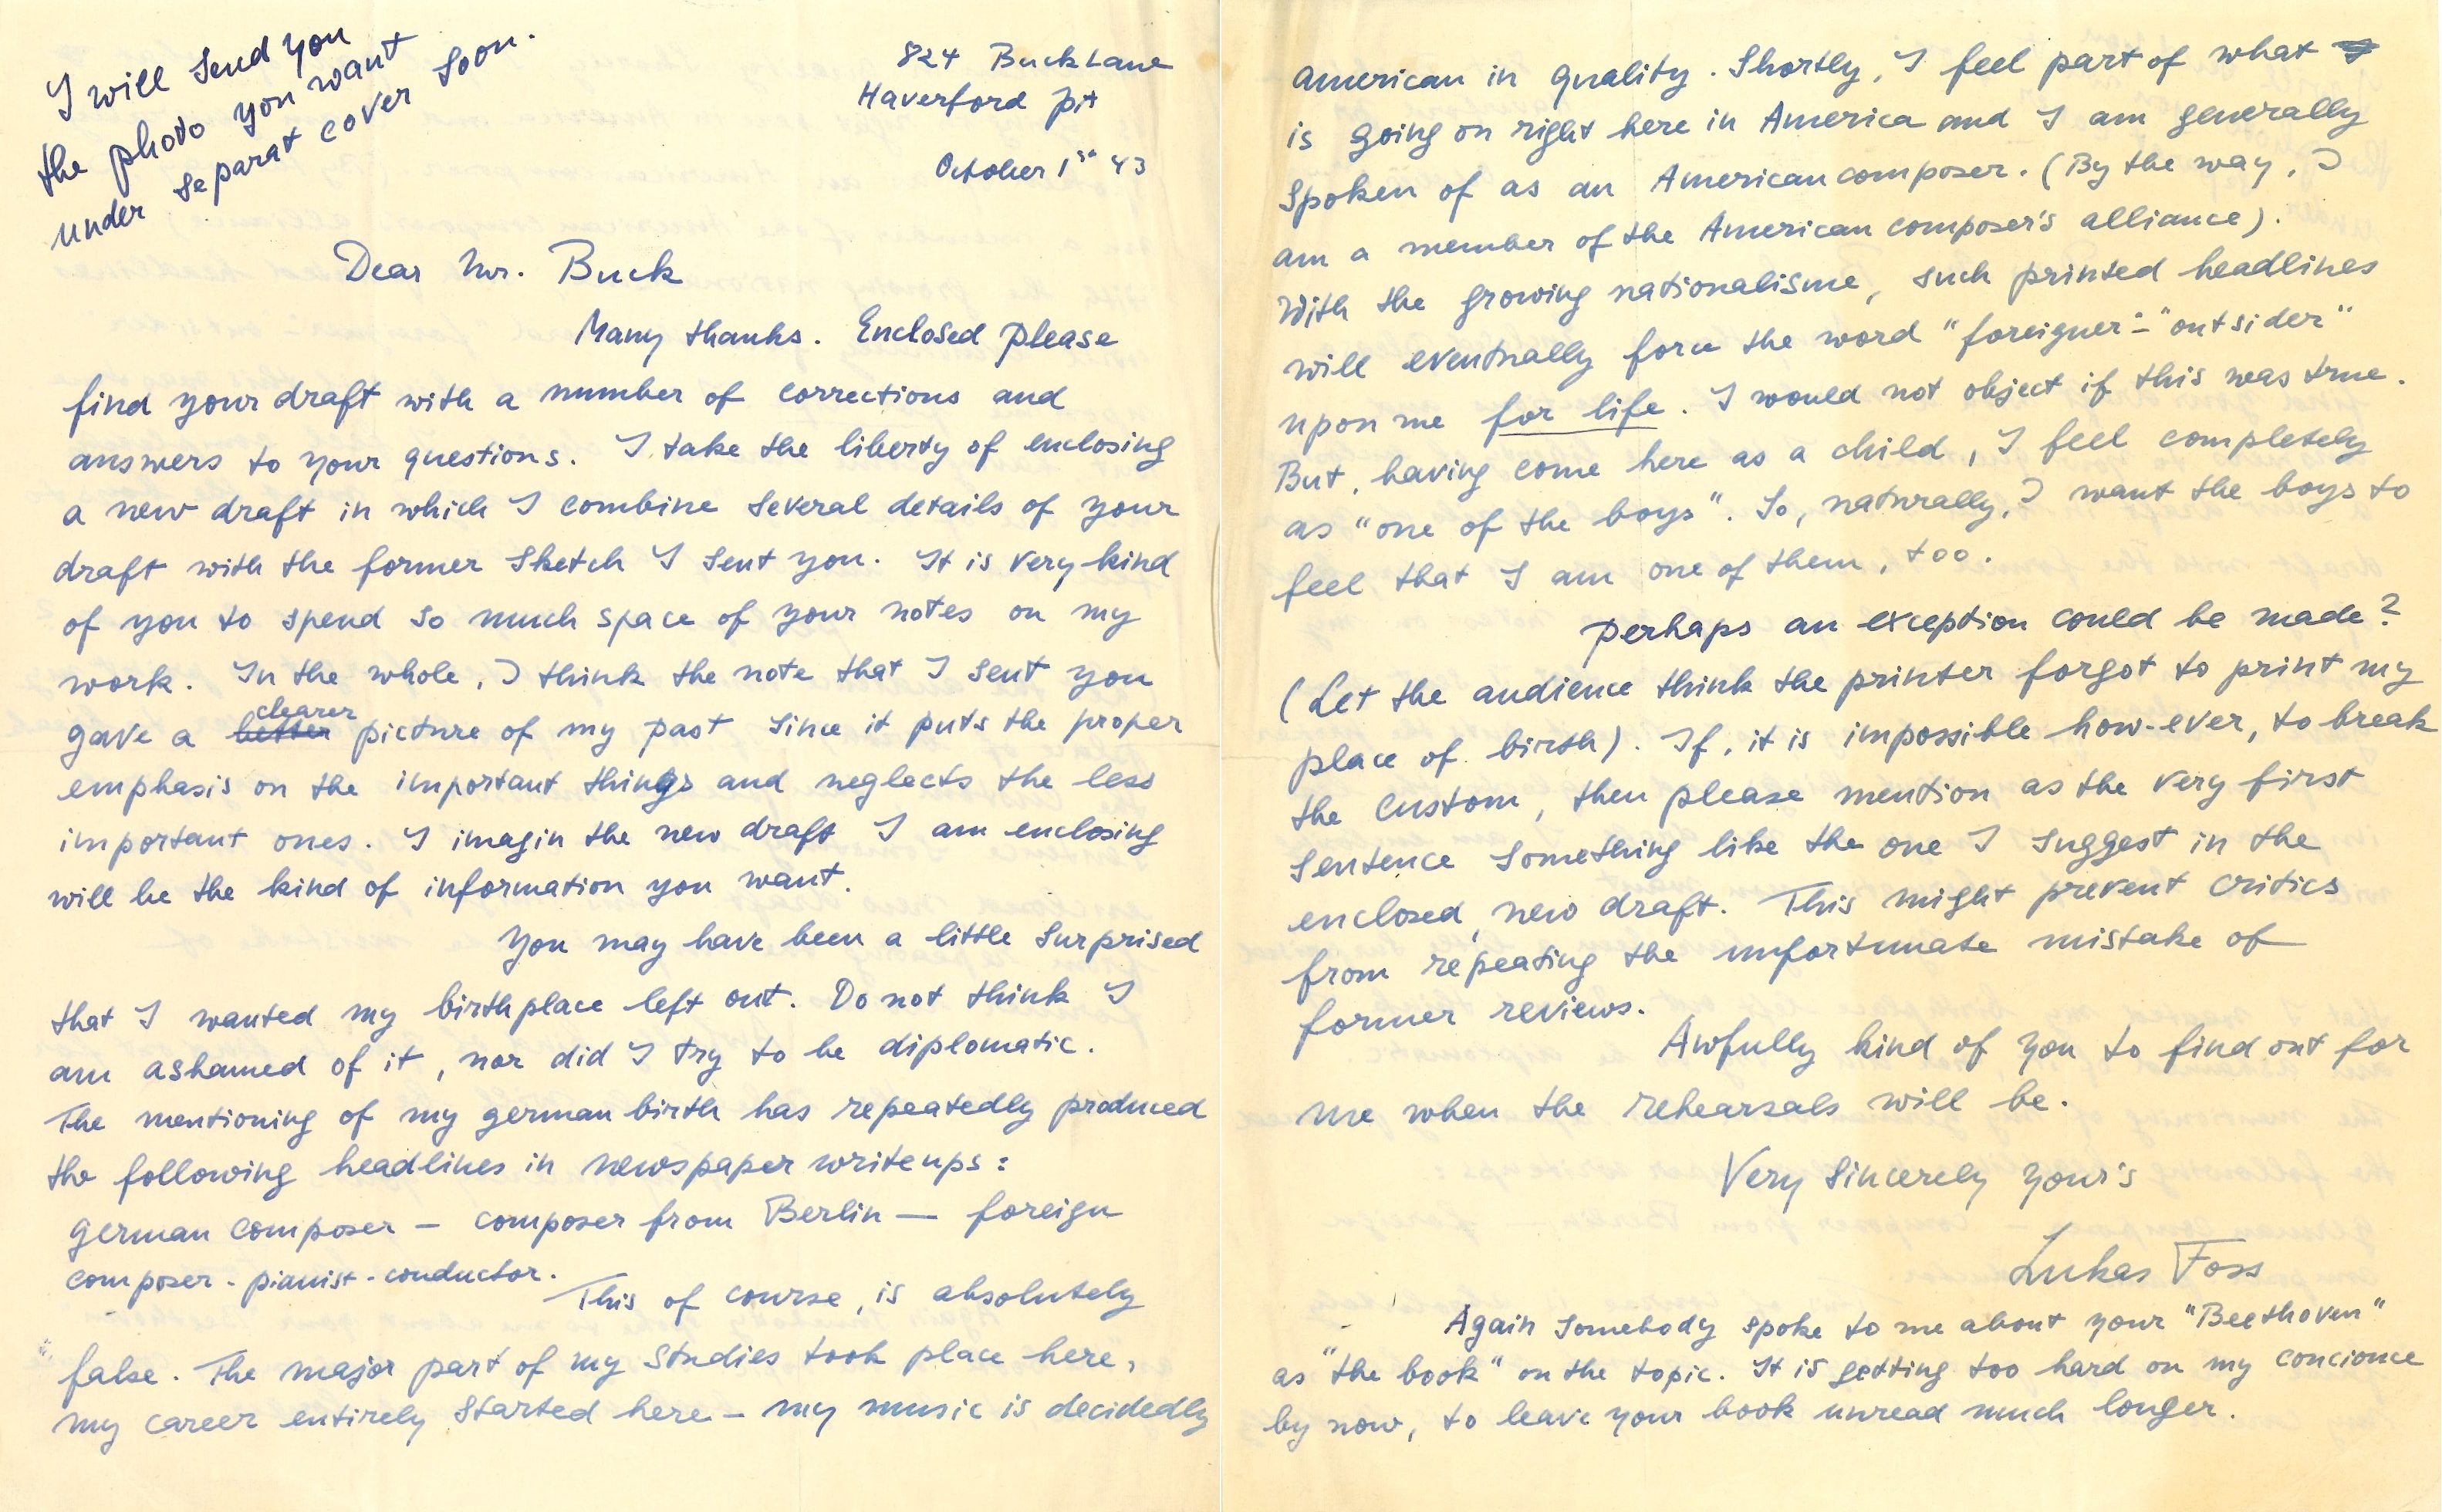 I will send you
the photo you want
under separat cover soon.
824 Buck Lane
Haverford Pa
October 1st 43
Dear Mr. Buck
Many thanks. Enclosed please
find your draft with a number of corrections and
answers to your questions. I take the liberty of enclosing
a new draft in which I combine several details of your
draft with the former sketch I sent you. It is very kind
of you to spend so much space of your notes on my
work. In the whole, I think the note that I sent you
gave a better clearer picture of my past since it puts the proper
emphasis on the important things and neglects the less
important ones. I imagin the new draft I am enclosing
will be the kind of information you want.
You may have been a little surprised
that I wanted my birthplace left out. Do not think I
am ashamed of it, nor did I try to be diplomatic.
The mentioning of my german birth has repeatedly produced
the following headlines in newspaper writeups:
german composer — composer from Berlin — foreign
composer-pianist-conductor.
This of course, is absolutely
false. The major part of my studies took place here,
my career entirely started here — my music is decidedly
american in quality. Shortly, I feel part of what
is going on right here in America and I am generally
spoken of as an American composer. (By the way, I
am a member of the American composer's alliance).
With the growing nationalisme, such printed headlines
will eventually force the word "foreigner"-"outsider"
upon me for life. I would not object if this was true.
But, having come here as a child, I feel completely
as "one of the boys". So, naturally, I want the boys to
feel that I am one of them, too.
Perhaps an exception could be made?
(Let the audience think the printer forgot to print my
place of birth). If, it is impossible how-ever, to break
the custom, then please mention as the very first
sentence something like the one I suggest in the
enclosed, new draft. This might prevent critics
from repeating the unfortunate mistake of
former reviews.
Awfully kind of you to find out for
me when the rehearsals will be.
Very sincerely your's
Lukas Foss
Again somebody spoke to me about your "Beethoven"
as "the book" on the topic. It is getting too hard on my concionce
by now, to leave your book unread much longer.